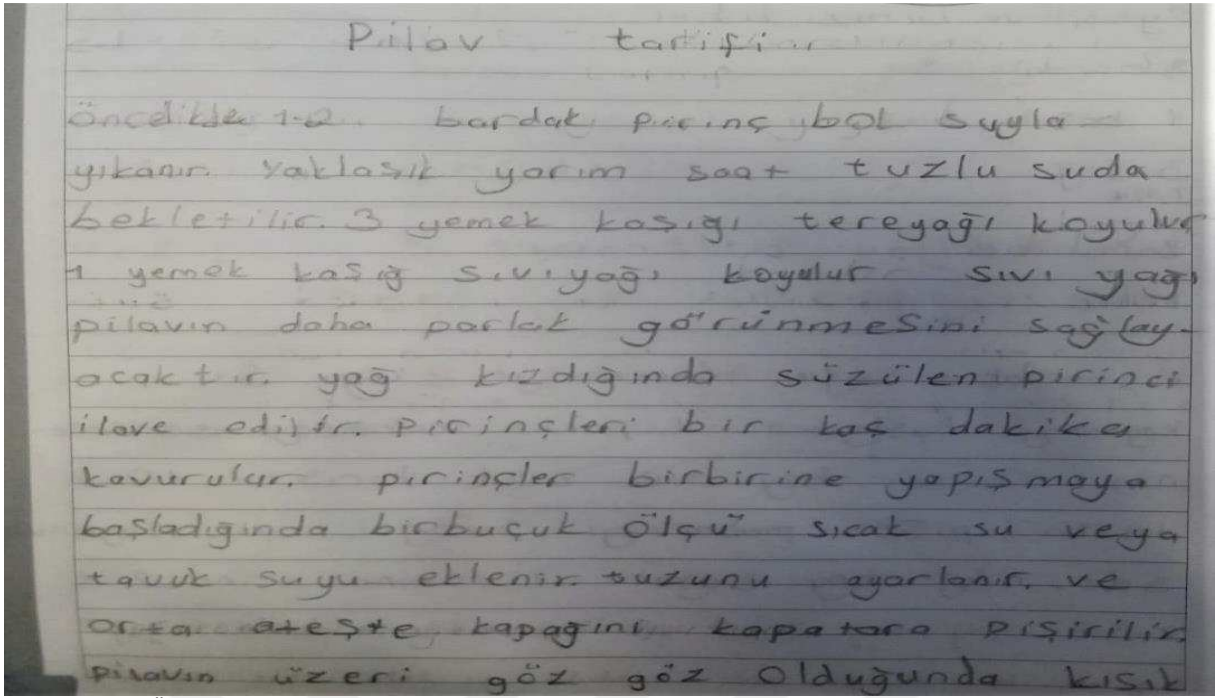 Pilav tarifi
öncelikle 1-2 bardak pirinç bol suyla
yıkanır. Yaklaşık yarım saat tuzlu suda
bekletilir. 3 yemek kaşığı tereyağı koyulur
1 yemek kaşığ sıvıyağı koyulur sıvı yağı
pilavın daha parlak görünmesini sağlay-
acaktır. yağ kızdığında süzülen pirinci
ilave edilir. pirinçleri bir kaç dakika
kavurulur. pirinçler birbirine yapışmaya
başladığında birbuçuk ölçü sıcak su veya
tavuk suyu eklenir. tuzunu ayarlanır. ve
orta ateşte kapağını kapatara pişirilir.
pilavın üzeri göz göz olduğunda kısık